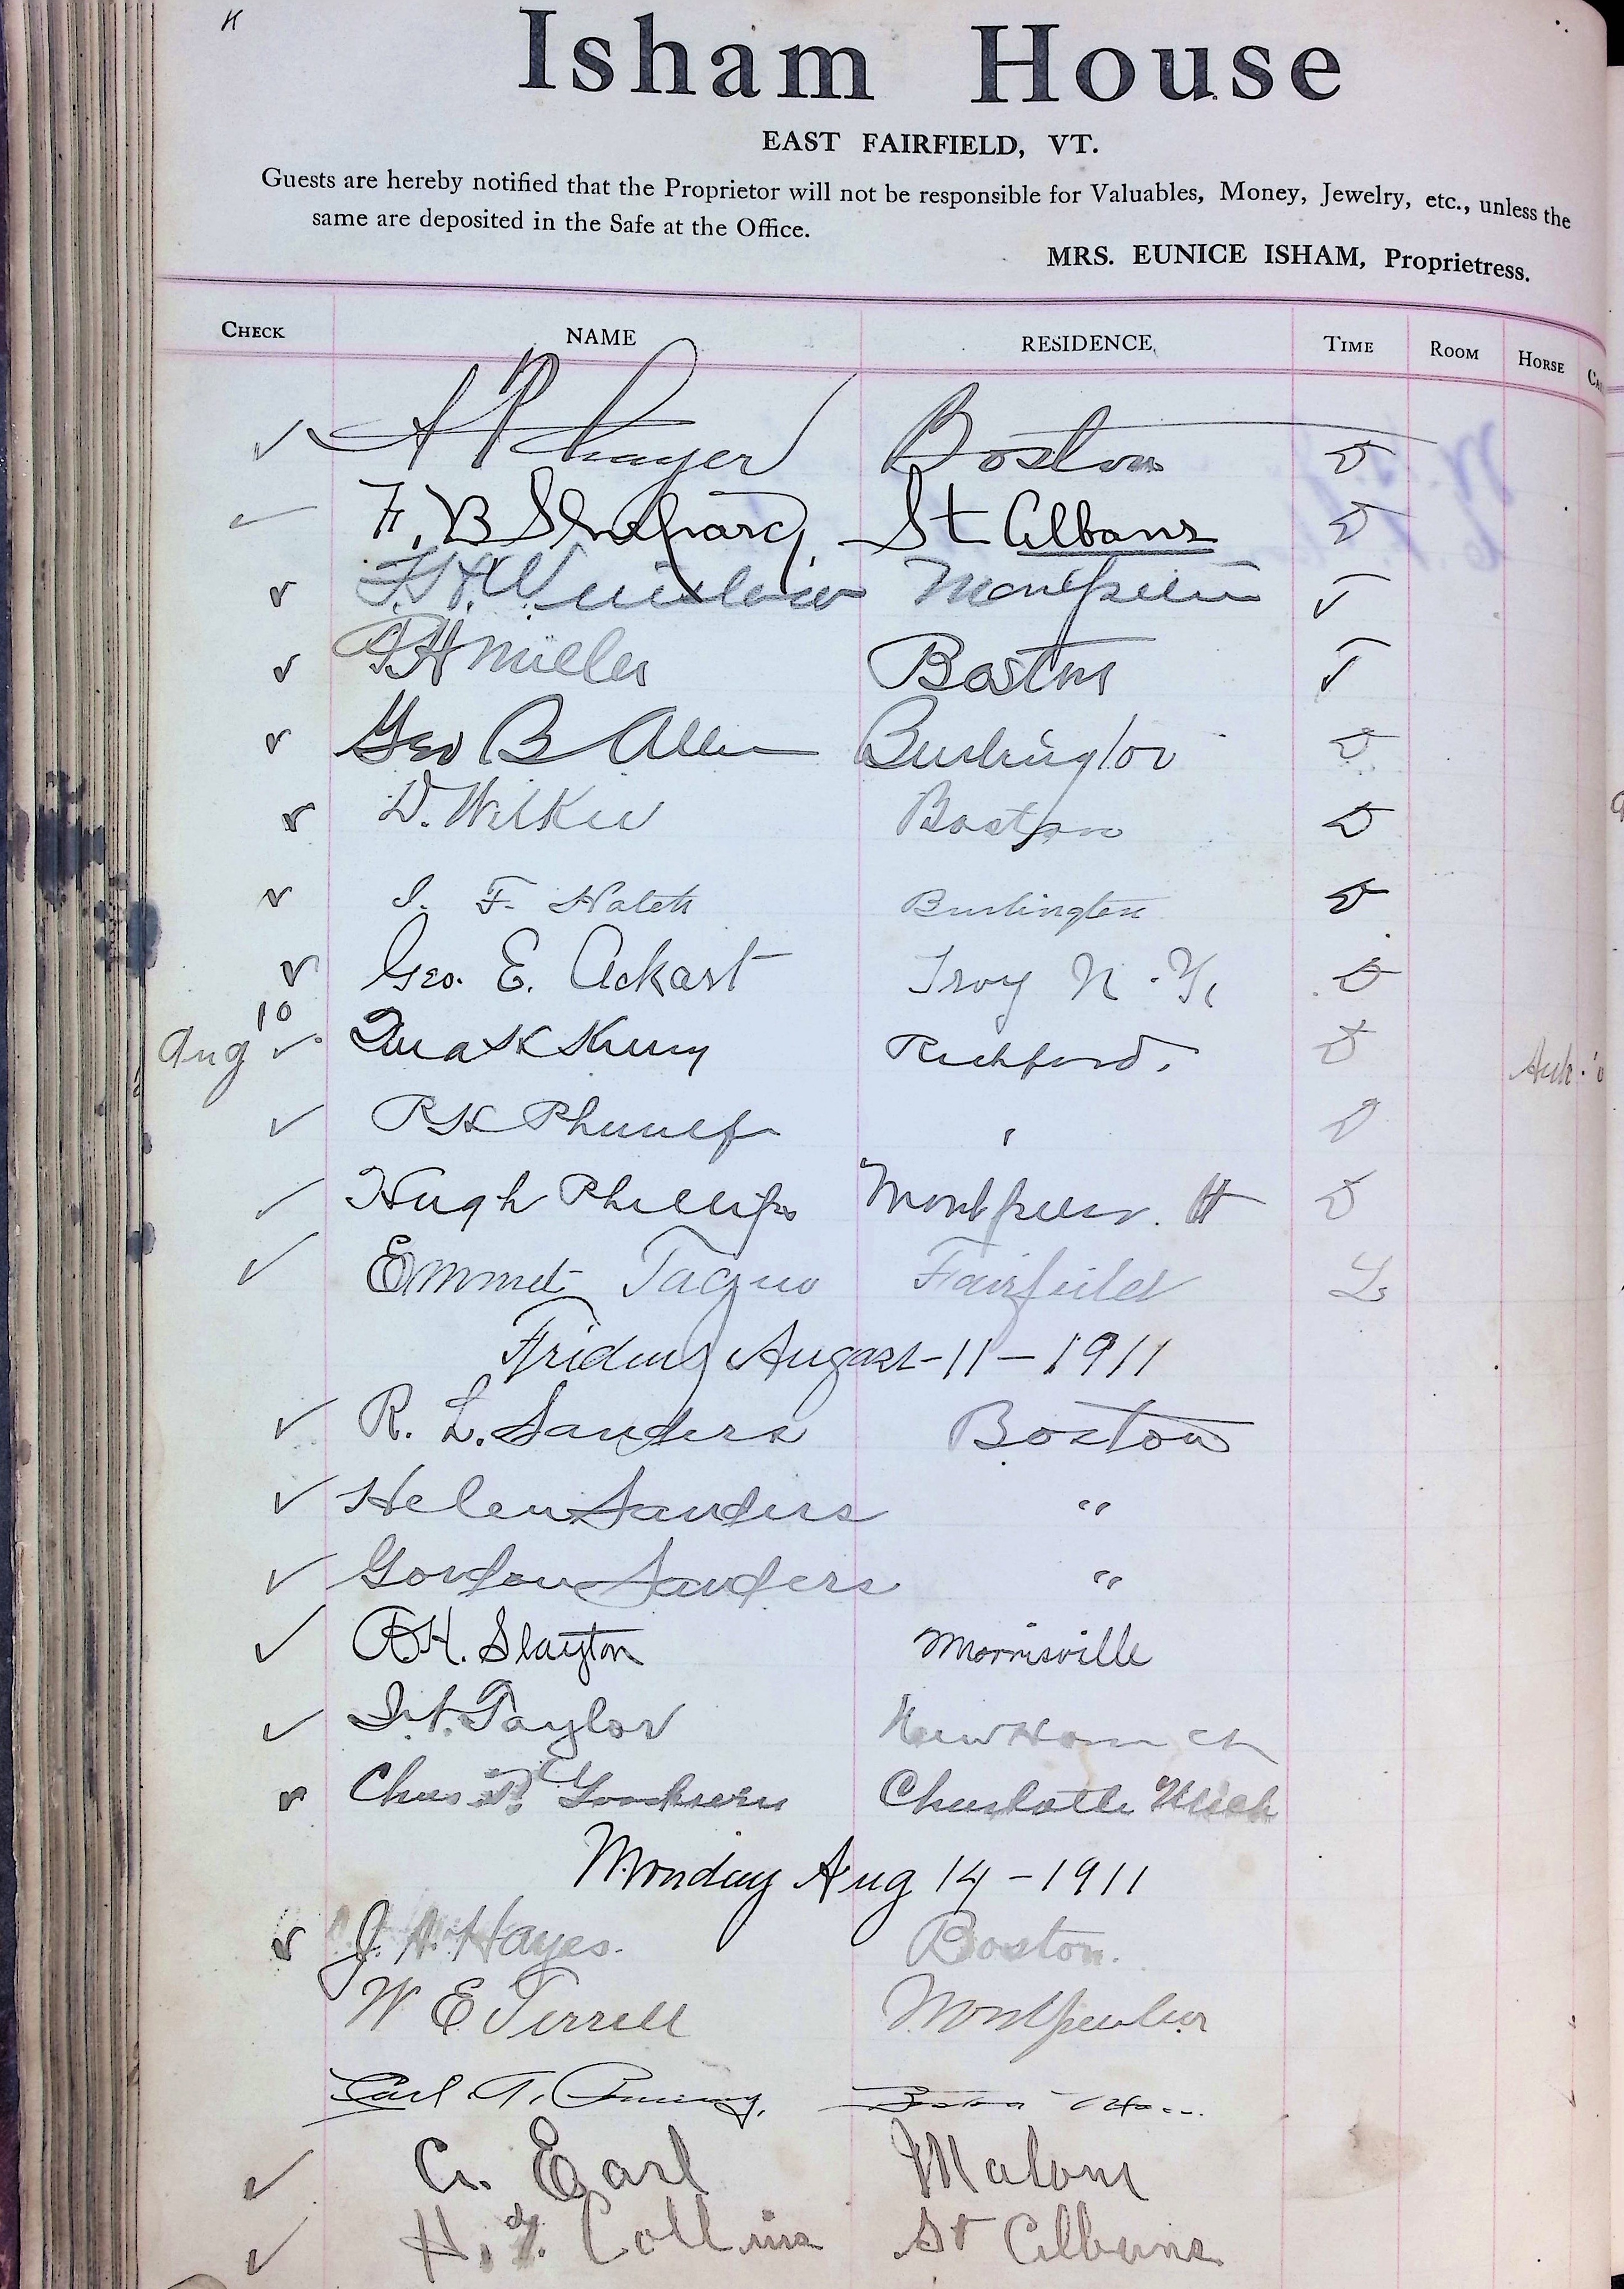 K
Isham House
EAST FAIRFIELD, VT.
Guests are hereby notified that the Proprietor will not be responsible for Valuables, Money, Jewelry, etc., unless the
same are deposited in the Safe at the Office.
MRS. EUNICE ISHAM, Proprietress.
CHECK NAME RESIDENCE TIME ROOM HORSE
✓ Thayer Boston D
✓ F. B Shepard St Albans D
✓ F. H. Winslow Montpelier
✓ Miller Boston
✓ Geo B Allen Burlington D
✓ D. Wilkie Boston D
✓ I. F. Hatch Burlington D
✓ Geo. E. Ackart Troy N.Y. D
10
Aug ✓ Richford. D
✓ D
✓ Hugh Phillips Montpelier. D
✓ Emmet Fairfield L
Friday August-11-1911
✓ R. L. Sanders Boston
✓ Helen Sanders "
✓ Gordon Sanders "
✓ H. Slayton Morrisville
✓ Taylor New
✓ Chas Charlotte Mich
Monday Aug 14-1911
✓ J. A. Hayes. Boston.
W E Terrell Montpelier
Carl T. Boston
✓ Earl Malone
✓ H. Collins St Albans